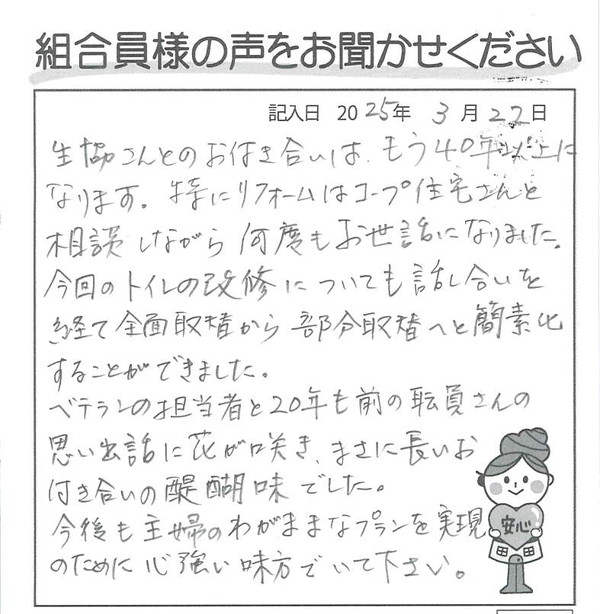 組合員様の声をお聞かせください
記入日 2025年 3月 22日
生協さんとのお付き合いは、もう40年以上に
なります。特にリフォームはコープ住宅さんと
相談しながら何度もお世話になりました。
今回のトイレの改修についても話し合いを
経て全面取替から部分取替へと簡素化
することができました。
ベテランの担当者と20年も前の職員さんの
思い出話に花が咲き、まさに長いお
付き合いの醍醐味でした。
今後も主婦のわがままなプランを実現
のために心強い味方でいて下さい。
安心